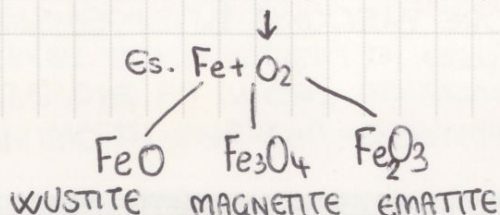 Es. Fe + O₂
FeO Fe₃O₄ Fe₂O₃
WUSTITE MAGNETITE EMATITE